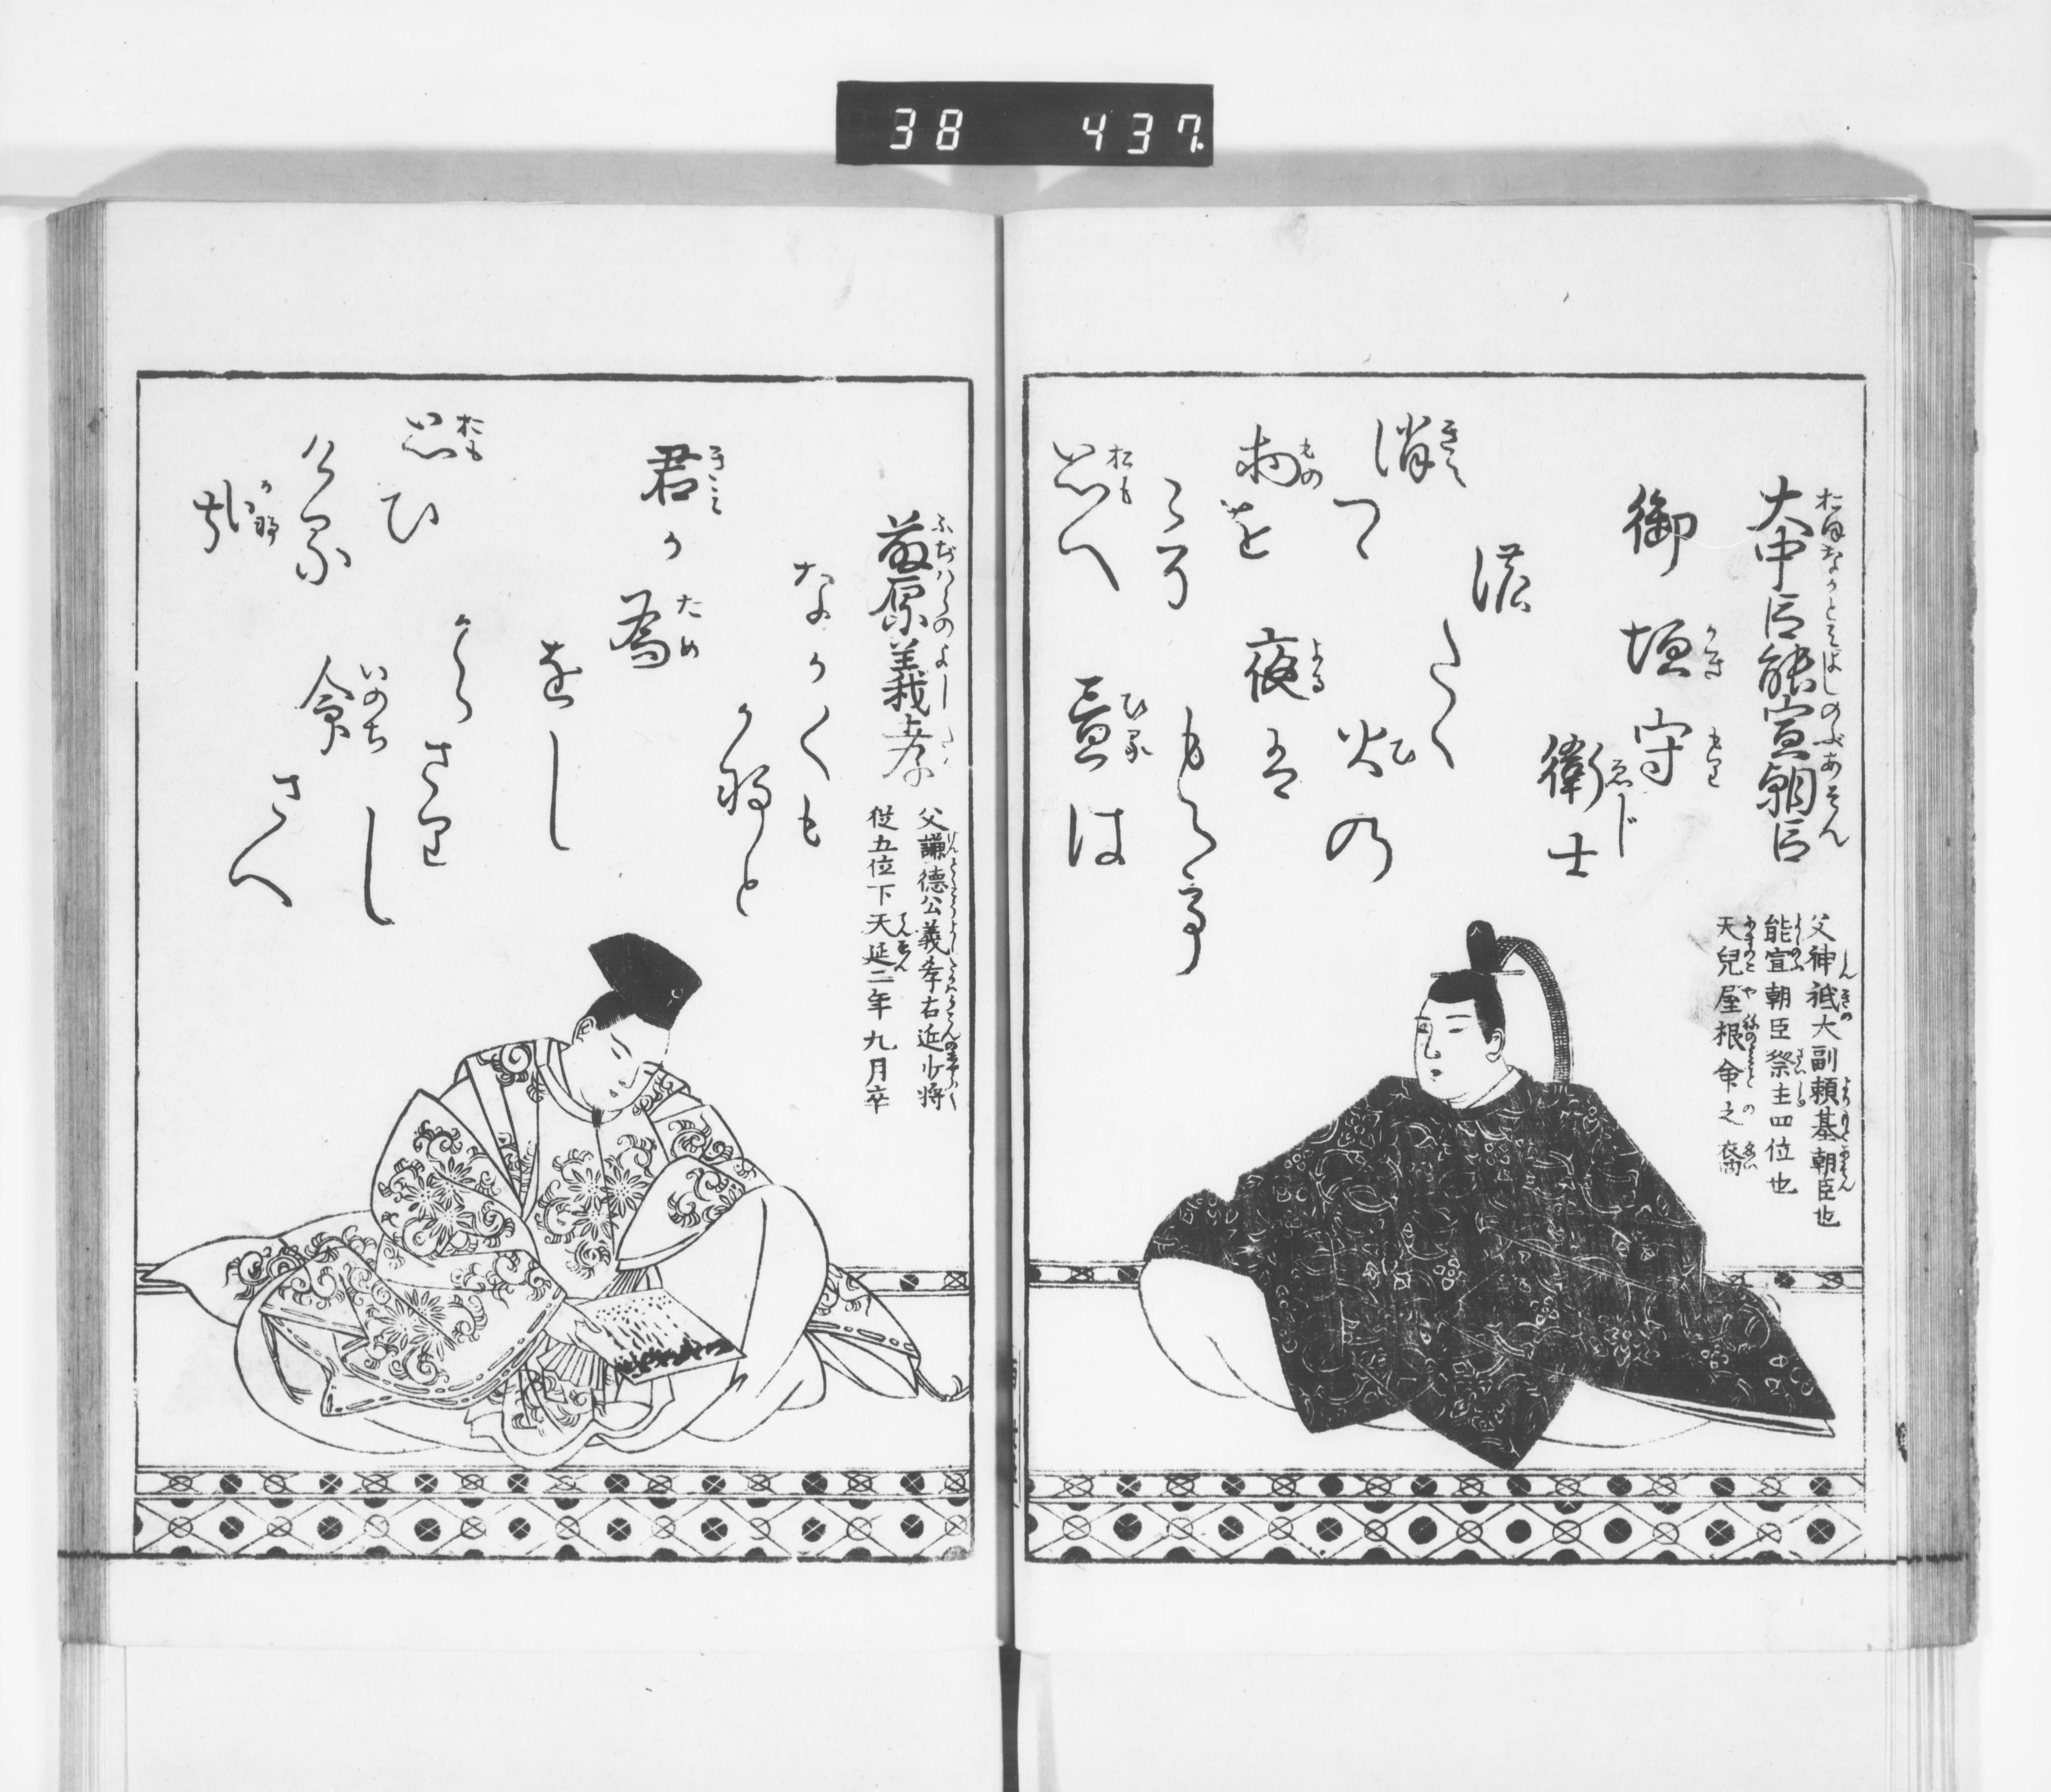 38 437
大中臣能宣朝臣
父神祇大副頼基朝臣也
能宣朝臣祭主四位也
天兒屋根命之裔
御垣守
衛士
濃たく
火の
夜は
もえて
昼は
消つゝ
物を
こそ
思へ
藤原義孝
父謙德公義孝右近少将
従五位下天延二年九月卒
君か為
をし
からさり
し
命
さへ
なかくも
かなと
思ひ
ける
哉